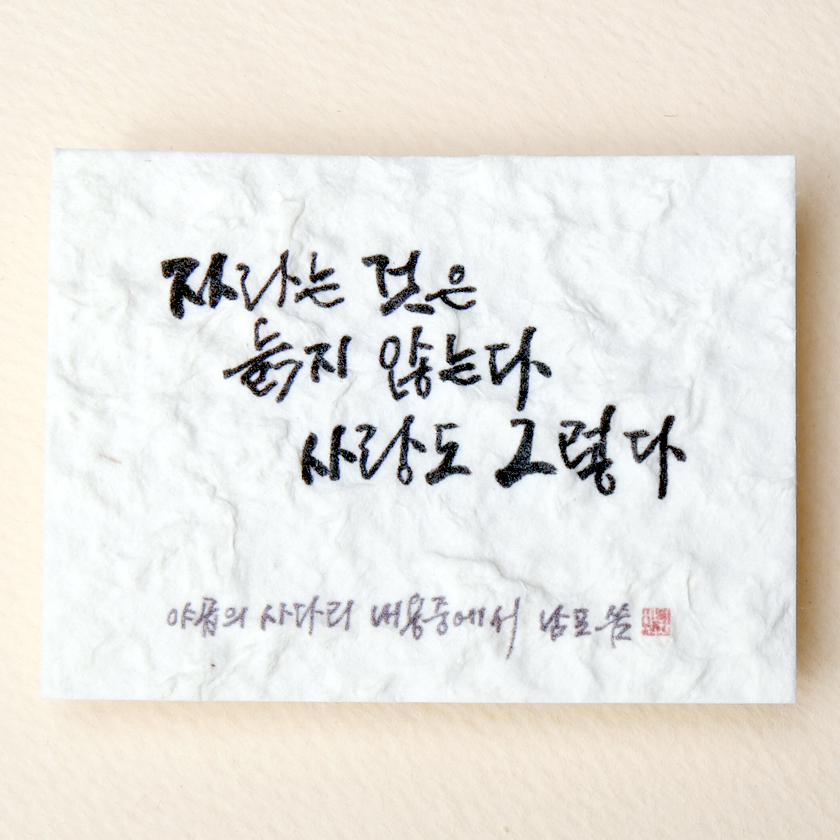 자라는 것은
늙지 않는다
사랑도 그렇다
야곱의 사다리 내용중에서 남포 씀